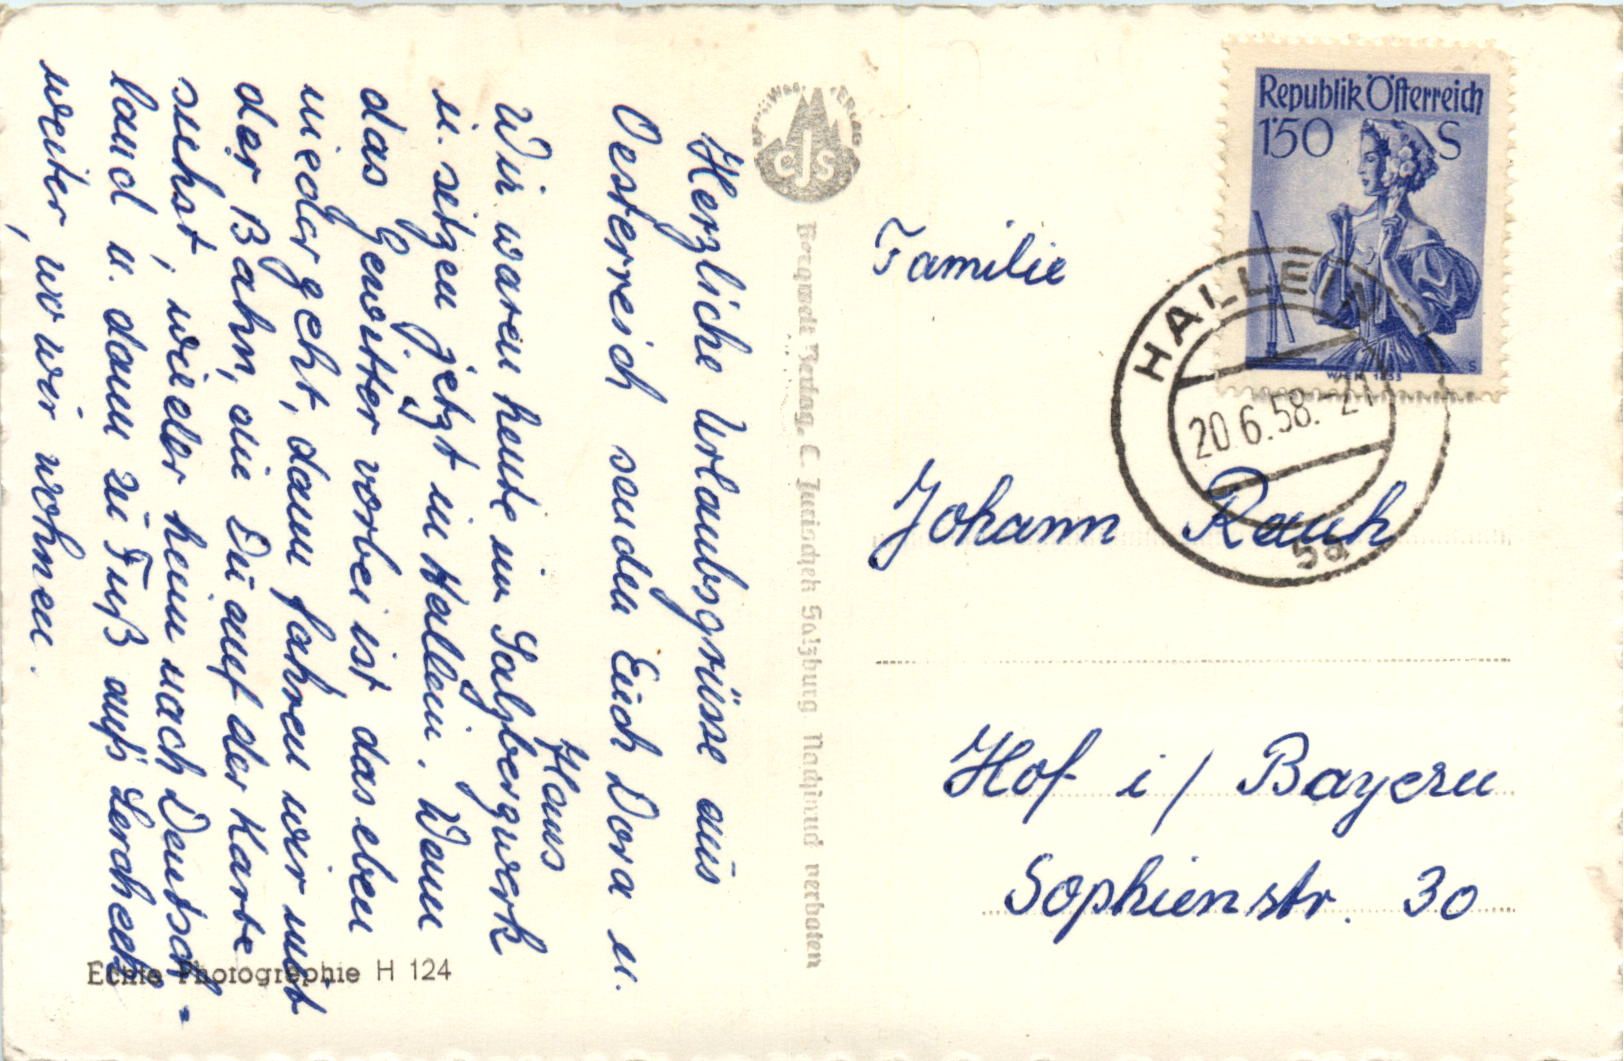 Herzliche Urlaubsgrüsse aus
Oesterreich senden Euch Dora u.
Hans
Wir waren heute im Salzbergwerk
u. sitzen jetzt in Hallein. Wenn
das Gewitter vorbei ist, das eben
niedergeht, dann fahren wir mit
der Bahn, die Du auf der Karte
siehst, wieder heim nach Deutsch-
land u. dann zu Fuß aufs Lercheck
weiter, wo wir wohnen.
Echte Photographie H 124
CJS
Bergwelt Verlag, C. Jurischek Salzburg Nachdruck verboten
Republik Österreich
1'50 S
WIEN 1853
HALLEIN
20.6.58.-21
5a
Familie
Johann Rauh
Hof i/ Bayern
Sophienstr. 30